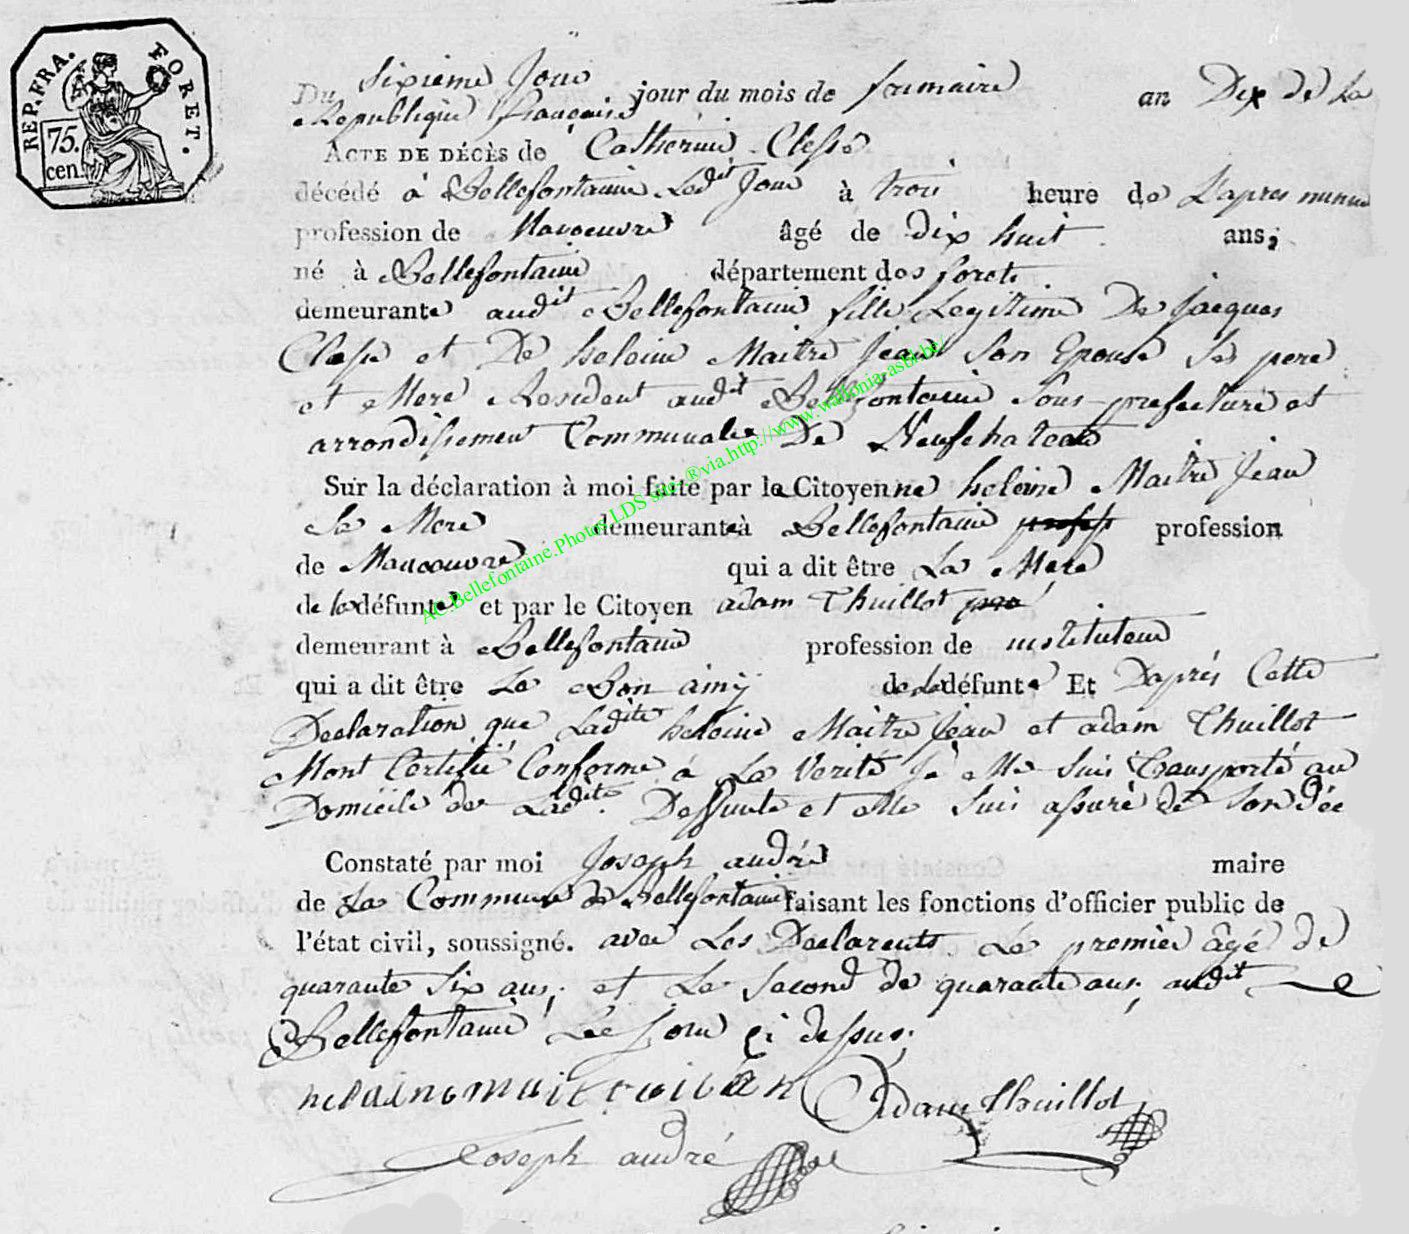 REP. FRA. FORET.
75.
cen.
Du Sixieme Jour jour du mois de frimaire an Dix de La
Republique francaise
ACTE DE DÉCÈS de Catherine Clesse
décédé à Bellefontaine Ledit Jour à trois heure de Lapres
profession de Manoeuvre âgé de dix huit ans,
né à Bellefontaine département des forets
demeurante audit Bellefontaine fille Legitime De Jacques
Clesse et De heleine Maitre Jean Son Epouse Ses pere
et Mere Resident audit Bellefontaine Sous prefecture et
arrondissement Communale De Neufchateau
Sur la déclaration à moi faite par la Citoyenne heleine Maitre Jean
Sa Mere demeurante à Bellefontaine profession
de Manoeuvre qui a dit être La Mere
de la défunte et par le Citoyen adam Thuillot
demeurant à Bellefontaine profession de instituteur
qui a dit être Le Bon amy de la défunte Et Daprés Cette
Declaration que Ladite heleine Maitre Jean et adam Thuillot
Mont Certifié Conforme a La Verité Je Me Suis Transporté au
Domicile de Ladite Deffunte et Me Suis assuré de Son dée
Constaté par moi Joseph andré maire
de La Commune de Bellefontaine faisant les fonctions d'officier public de
l'état civil, soussigné. avec Les Declarents Le premier âgé de
quarante Six ans; et Le Second de quarante ans; audit
Bellefontaine Le Jour çi dessus;
Adam Thuillot
Joseph andré
AC.Bellefontaine.Photos.LDS site.®via.http://www.wallonia-asbl.be/